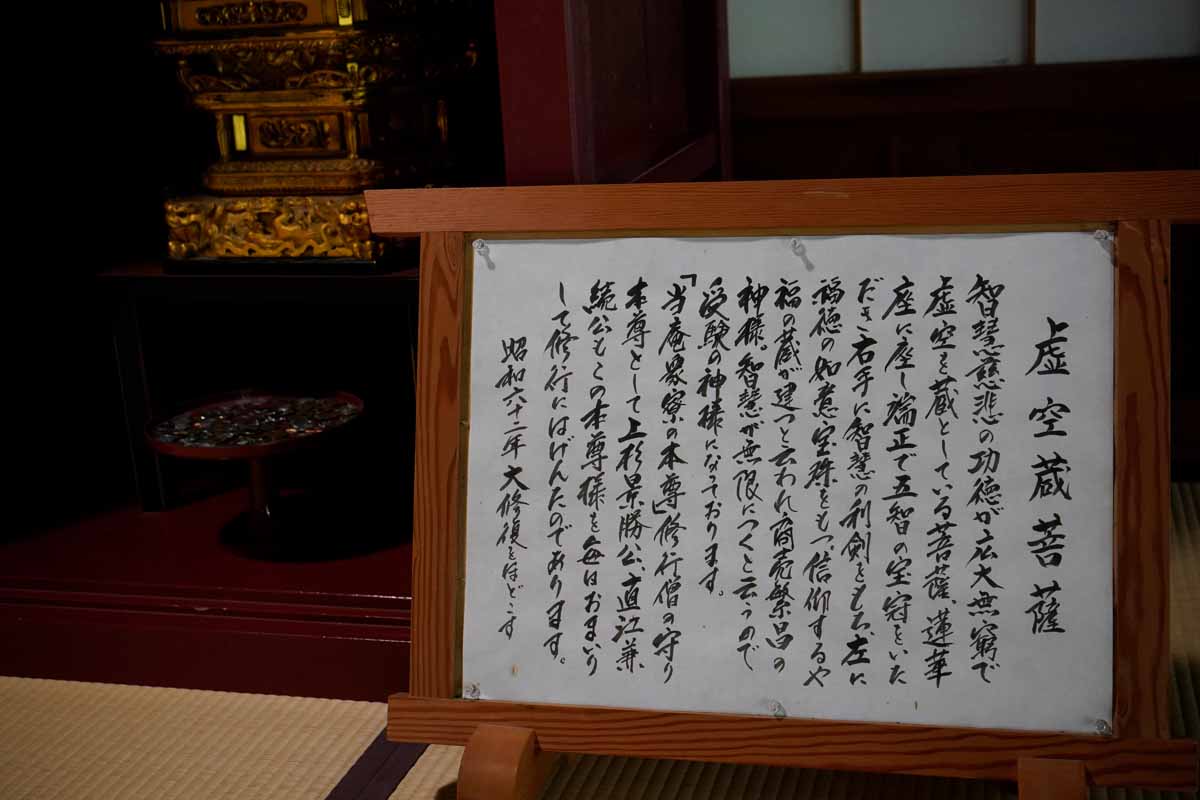 虚空蔵菩薩
智慧慈悲の功徳が広大無窮で
虚空を蔵としている菩薩、蓮華
座に座し端正で五智の宝冠をいた
だき右手に智慧の利剣をもち、左に
福徳の如意宝珠をもつ。信仰するや
福の蔵が建つと云われ商売繁昌の
神様。智慧が無限につくと云うので
受験の神様になっております。
「当庵衆寮の本尊」修行僧の守り
本尊として上杉景勝公、直江兼
続公もこの本尊様を毎日おまいり
して修行にはげんたのであります。
昭和六十二年 大修復をほどこす